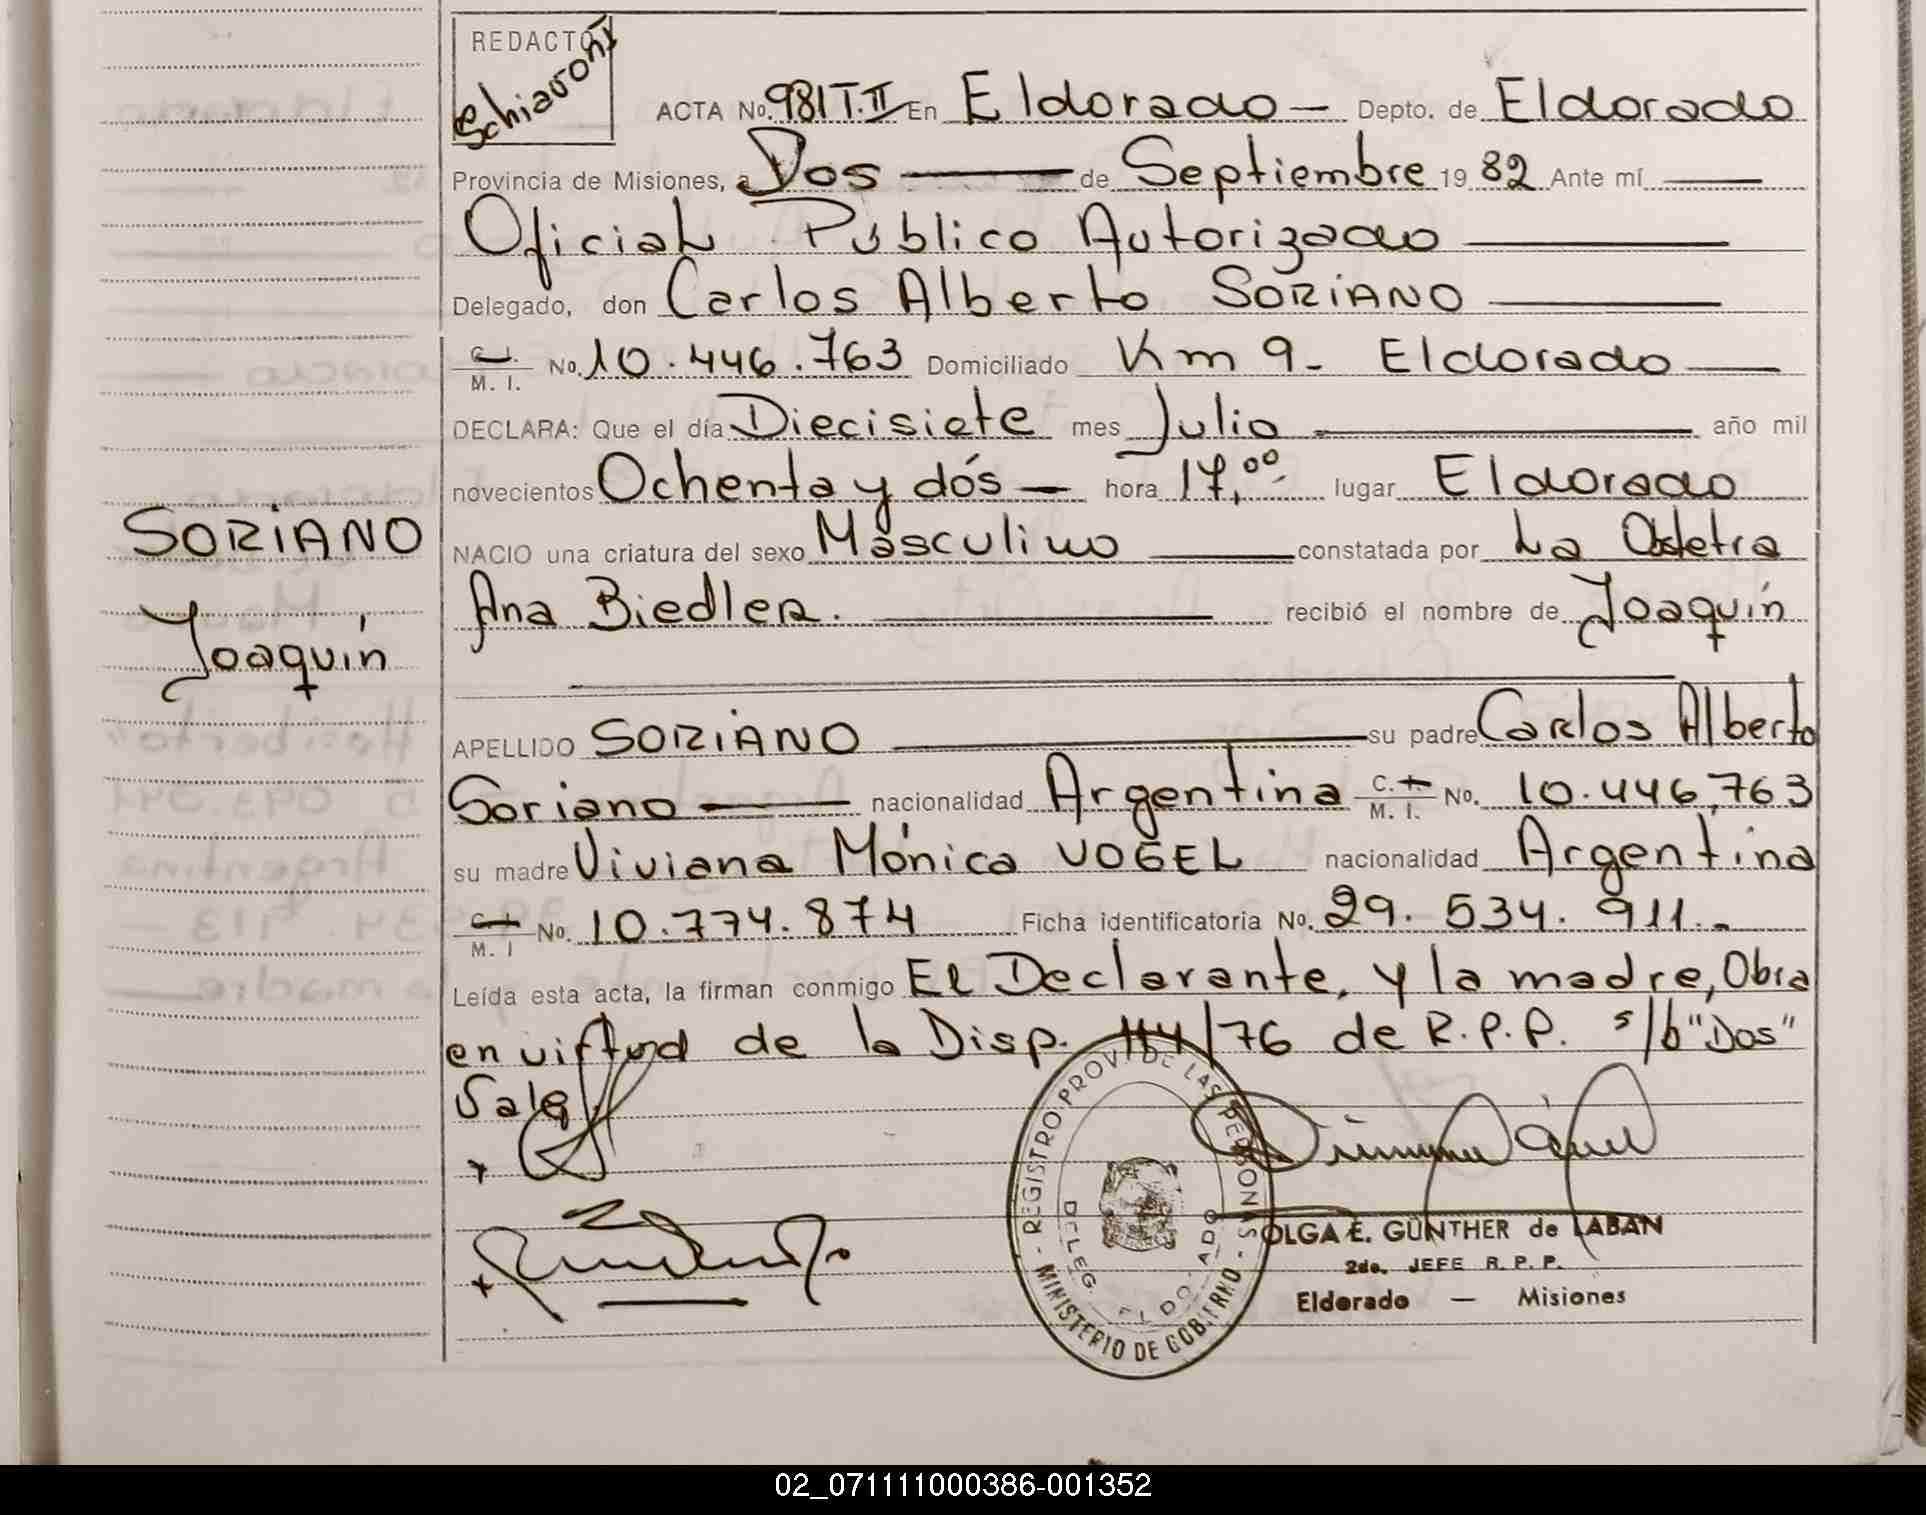 REDACTÓ
Schiavoni
ACTA No. 981 T.II En Eldorado — Depto. de Eldorado
Provincia de Misiones, a Dos — de Septiembre 19 82 Ante mí —
Oficial Público Autorizado —
Delegado, don Carlos Alberto SORIANO —
C. I. / M. I. No. 10.446.763 Domiciliado Km 9 - Eldorado —
DECLARA: Que el día Diecisiete mes Julio — año mil
novecientos Ochenta y dós — hora 17,00 lugar Eldorado
NACIO una criatura del sexo Masculino — constatada por La Obstetra
Ana Biedler. — recibió el nombre de Joaquín
APELLIDO SORIANO — su padre Carlos Alberto
Soriano — nacionalidad Argentina C. I. / M. I. No. 10.446,763
su madre Viviana Mónica VOGEL nacionalidad Argentina
C. I. / M. I No. 10.774.874 Ficha identificatoria No. 29.534.911.-
Leída esta acta, la firman conmigo El Declarante, y la madre, Obra
en virtud de la Disp. 114/76 de R.P.P. s/b "Dos"
Vale
SORIANO
Joaquín
REGISTRO PROV. DE LAS PERSONAS
DELEG. ELDORADO
MINISTERIO DE GOBIERNO
OLGA E. GUNTHER de LABAN
2da. JEFE R. P. P.
Eldorado — Misiones
02_071111000386-001352